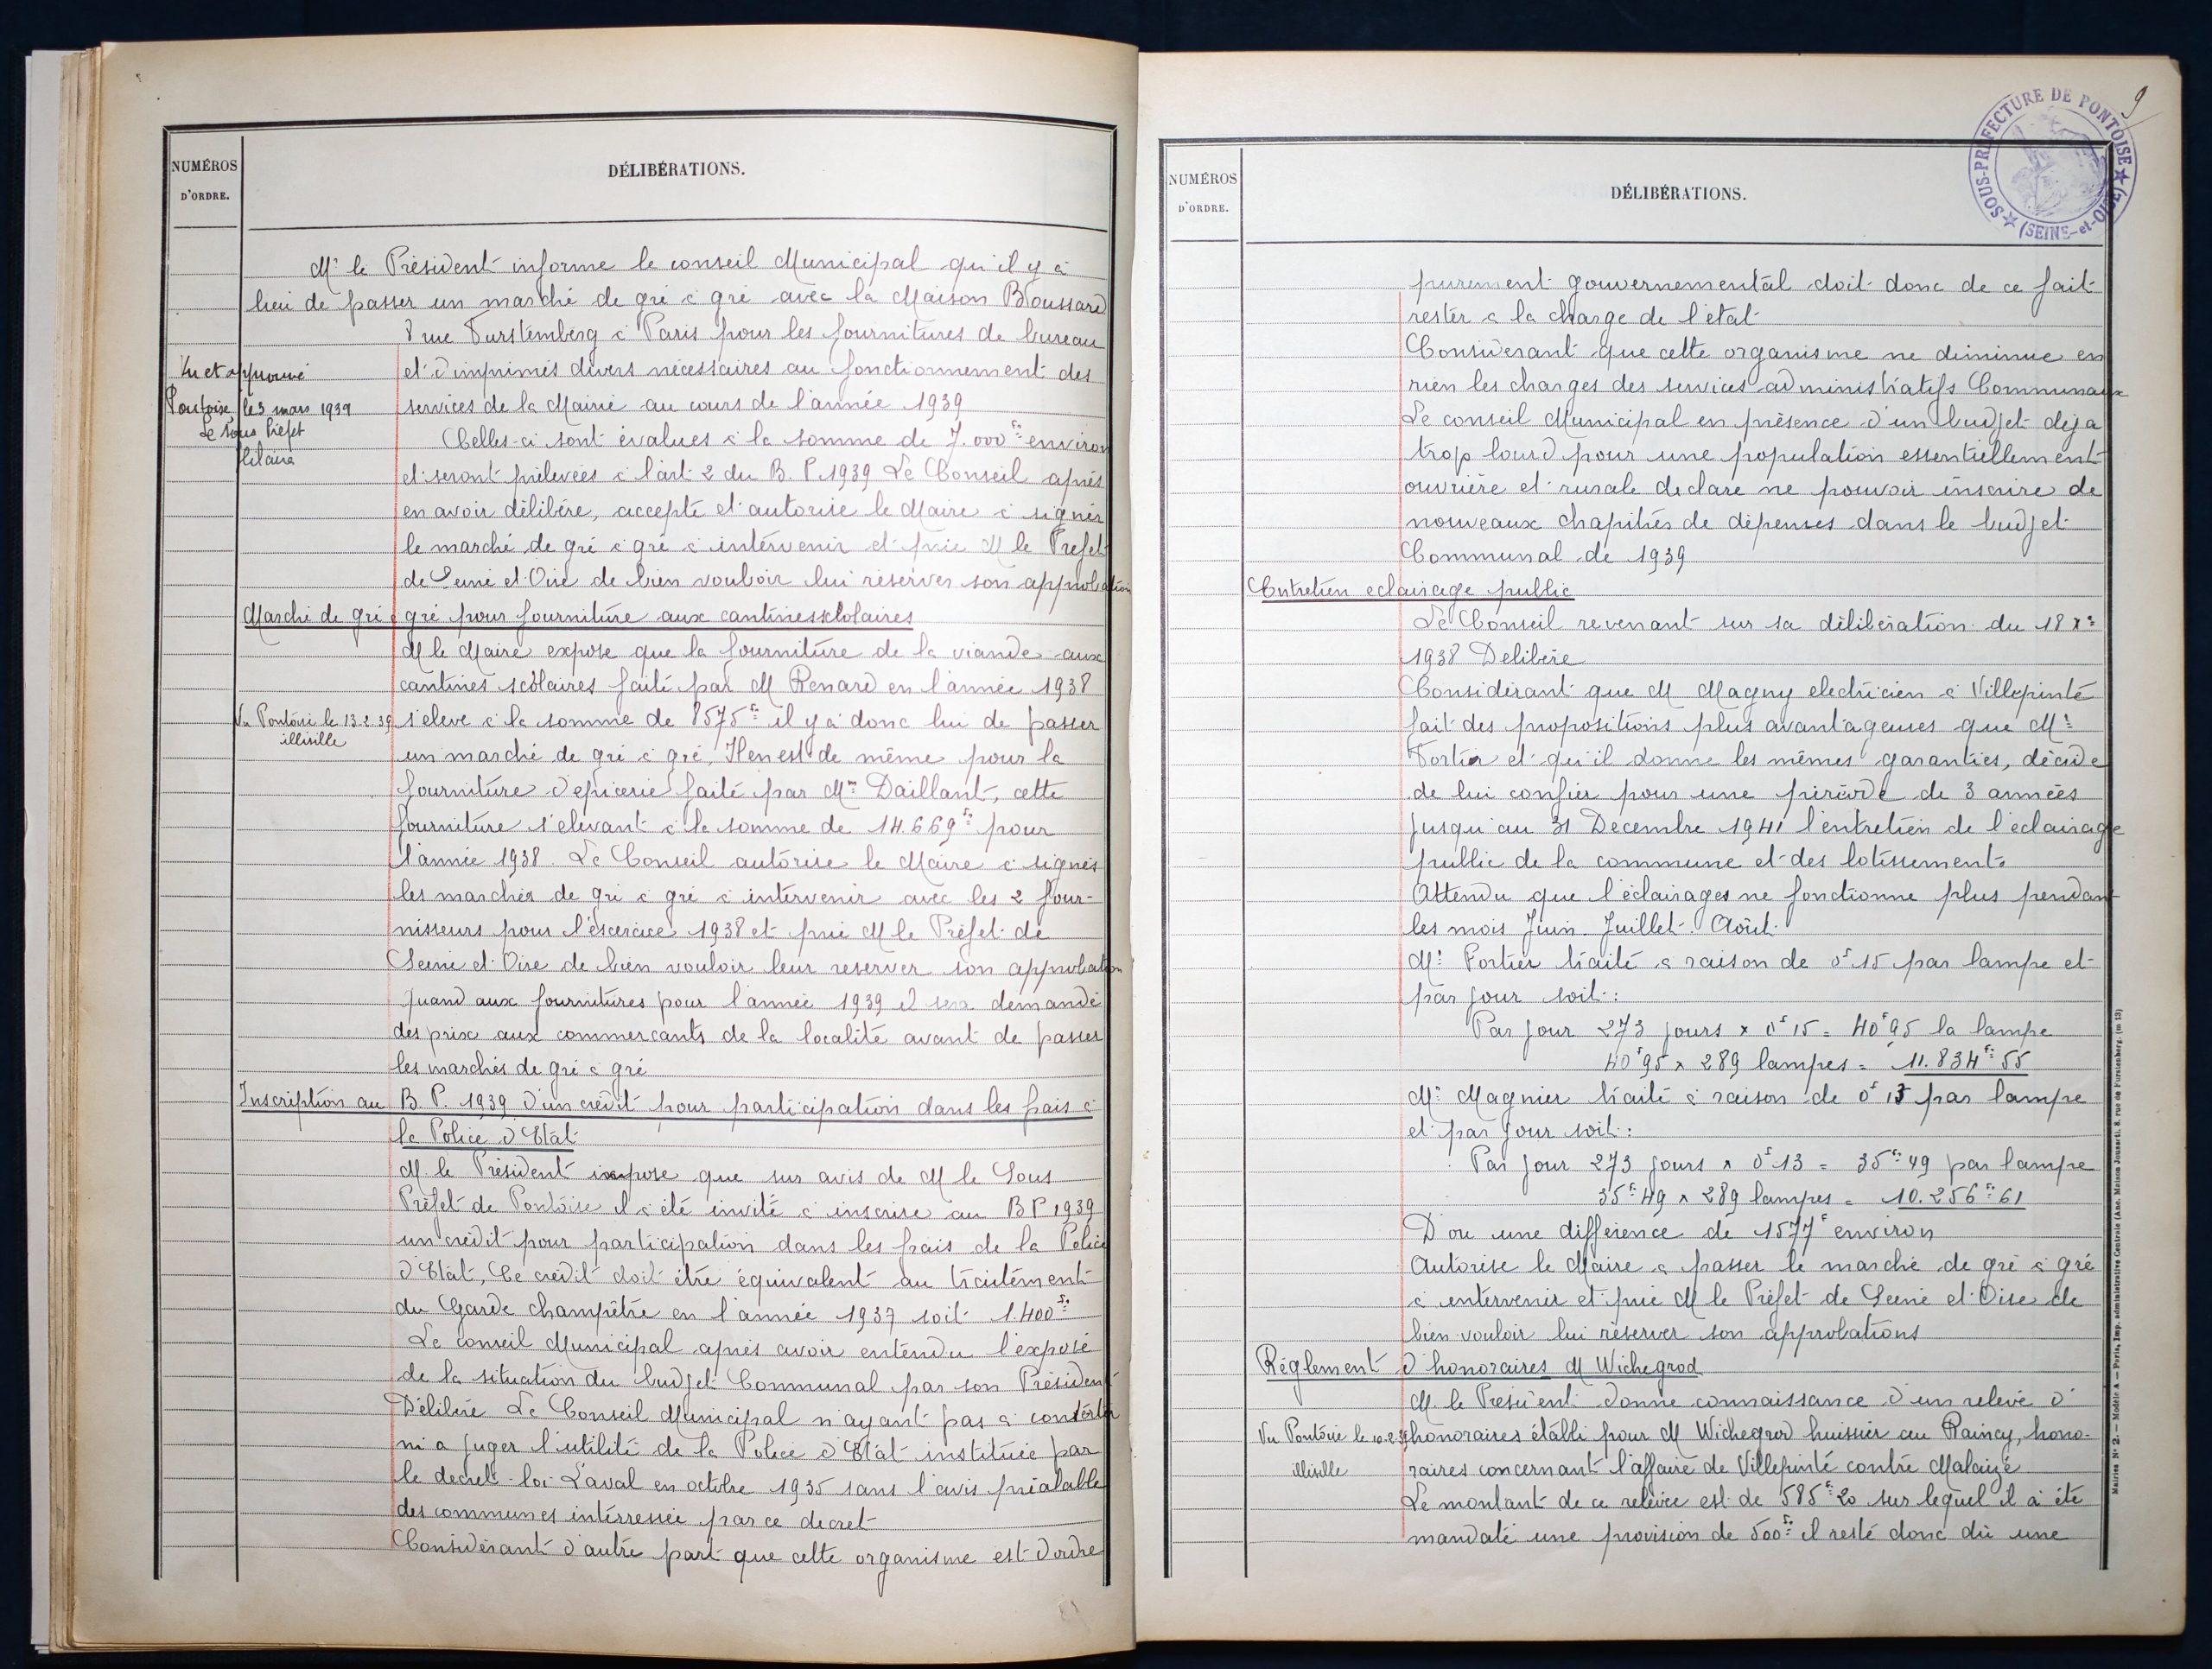 NUMÉROS
D'ORDRE.
DÉLIBÉRATIONS.
Mr le Président informe le conseil Municipal qu'il y à
lieu de passer un marché de gré à gré avec la Maison Broussard
8 rue Furstemberg à Paris pour les fournitures de bureau
et d'imprimés divers nécessaires au fonctionnement des
services de la Mairie au cours de l'année 1939
Vu et approuvé
Pontoise, le 3 mars 1939
Le Sous Préfet
Celles-ci sont évalues à la somme de 7.000 frs environ
et seront prélevées à l'art 2 du B. P. 1939 Le Conseil après
en avoir délibére, accepte et autorise le Maire à signer
le marché de gré à gré à intervenir et prie M le Prefet
de Seine et Oise de bien vouloir lui réserver son approbation
Marché de gré à gré pour fourniture aux cantines scolaires
M le Maire expose que la fourniture de la viande aux
cantines scolaires faite par M Renard en l'année 1938
Vu Pontoise le 13.2.39
illisille
s'eleve à la somme de 8575 frs il y a donc lui de passer
un marché de gré à gré, Il en est de même pour la
fourniture d'epicerie faite par Mme Daillant, cette
fourniture s'elevant à la somme de 14.669 frs pour
l'année 1938. Le Conseil autorise le Maire à signer
les marchés de gré à gré à intervenir avec les 2 four-
nisseurs pour l'éxcercice 1938 et prie M le Préfet de
Seine et Oise de bien vouloir leur reserver son approbation
quand aux fournitures pour l'année 1939 il sera demandé
des prix aux commercants de la localité avant de passer
les marchés de gré à gré
Inscription au B. P. 1939 d'un crédit pour participation dans les frais à
la Police d'Etat
M. le Président expose que sur avis de M le Sous
Préfet de Pontoise il a été invité à inscrire au B P 1939
un crédit pour participation dans les frais de la Police
d'Etat, Ce crédit doit être équivalent au traitement
du Garde champêtre en l'année 1937 soit 1.400 frs
Le conseil Municipal après avoir entendu l'exposé
de la situation du budjet Communal par son Président
Délibére Le Conseil Municipal n'ayant pas à contester
ni a juger l'utilité de la Police d'Etat instituée par
le decret-loi Laval en octobre 1935 sans l'avis préalable
des communes intérressée par ce decret
Considérant d'autre part que cette organisme est d'ordre
9
SOUS-PRÉFECTURE DE PONTOISE
(SEINE-et-OISE)
NUMÉROS
D'ORDRE.
DÉLIBÉRATIONS.
purement gouvernemental doit donc de ce fait
rester à la charge de l'etat
Considerant que cette organisme ne diminue en
rien les charges des services administratifs Communaux
Le conseil Municipal en présence d'un budjet deja
trop lourd pour une population essentiellement
ouvrière et rurale declare ne pouvoir inscrire de
nouveaux chapitres de dépenses dans le budjet
Communal de 1939
Entretien eclairage public
Le Conseil revenant sur sa délibération du 18 Xre
1938 Delibère
Considérant que M Magny electricien à Villepinte
fait des propositions plus avantageuses que Mr
Fortier et qu'il donne les mêmes garanties, décide
de lui confier pour une période de 3 années
jusqu'au 31 Decembre 1941 l'entretien de l'eclairage
public de la commune et des lotissements
Attendu que l'éclairages ne fonctionne plus pendant
les mois Juin. Juillet. Août.
Mr Fortier traite à raison de 0f15 par lampe et
par jour soit:
Par jour 273 jours x 0f15 = 40f95 la lampe
40f95 x 289 lampes = 11.834 frs 55
Mr Magnier traite à raison de 0f13 par lampe
et par jour soit:
Par jour 273 jours x 0f13 = 35 frs 49 par lampe
35 frs 49 x 289 lampes = 10.256 frs 61
D'ou une différence de 1577f environ
Autorise le Maire à passer le marché de gré à gré
à intervenir et prie M le Préfet de Seine et Oise de
bien vouloir lui réserver son approbations
Réglement d'honoraires M Wichegrod
M. le President donne connaissance d'un relevé d'
Vu Pontoise le 10.2.39
illisille
honoraires établi pour M Wichegrod huissier au Raincy, hono-
raires concernant l'affaire de Villepinte contre Malaizé
Le montant de ce relevée est de 585 frs 20 sur lequel il a été
mandaté une provision de 500 frs il reste donc dû une
Mairies No 2. — Modèle A — Paris, Imp. administrative Centrale (Anc. Maison Jousset), 8, rue de Furstenberg. (m 13)